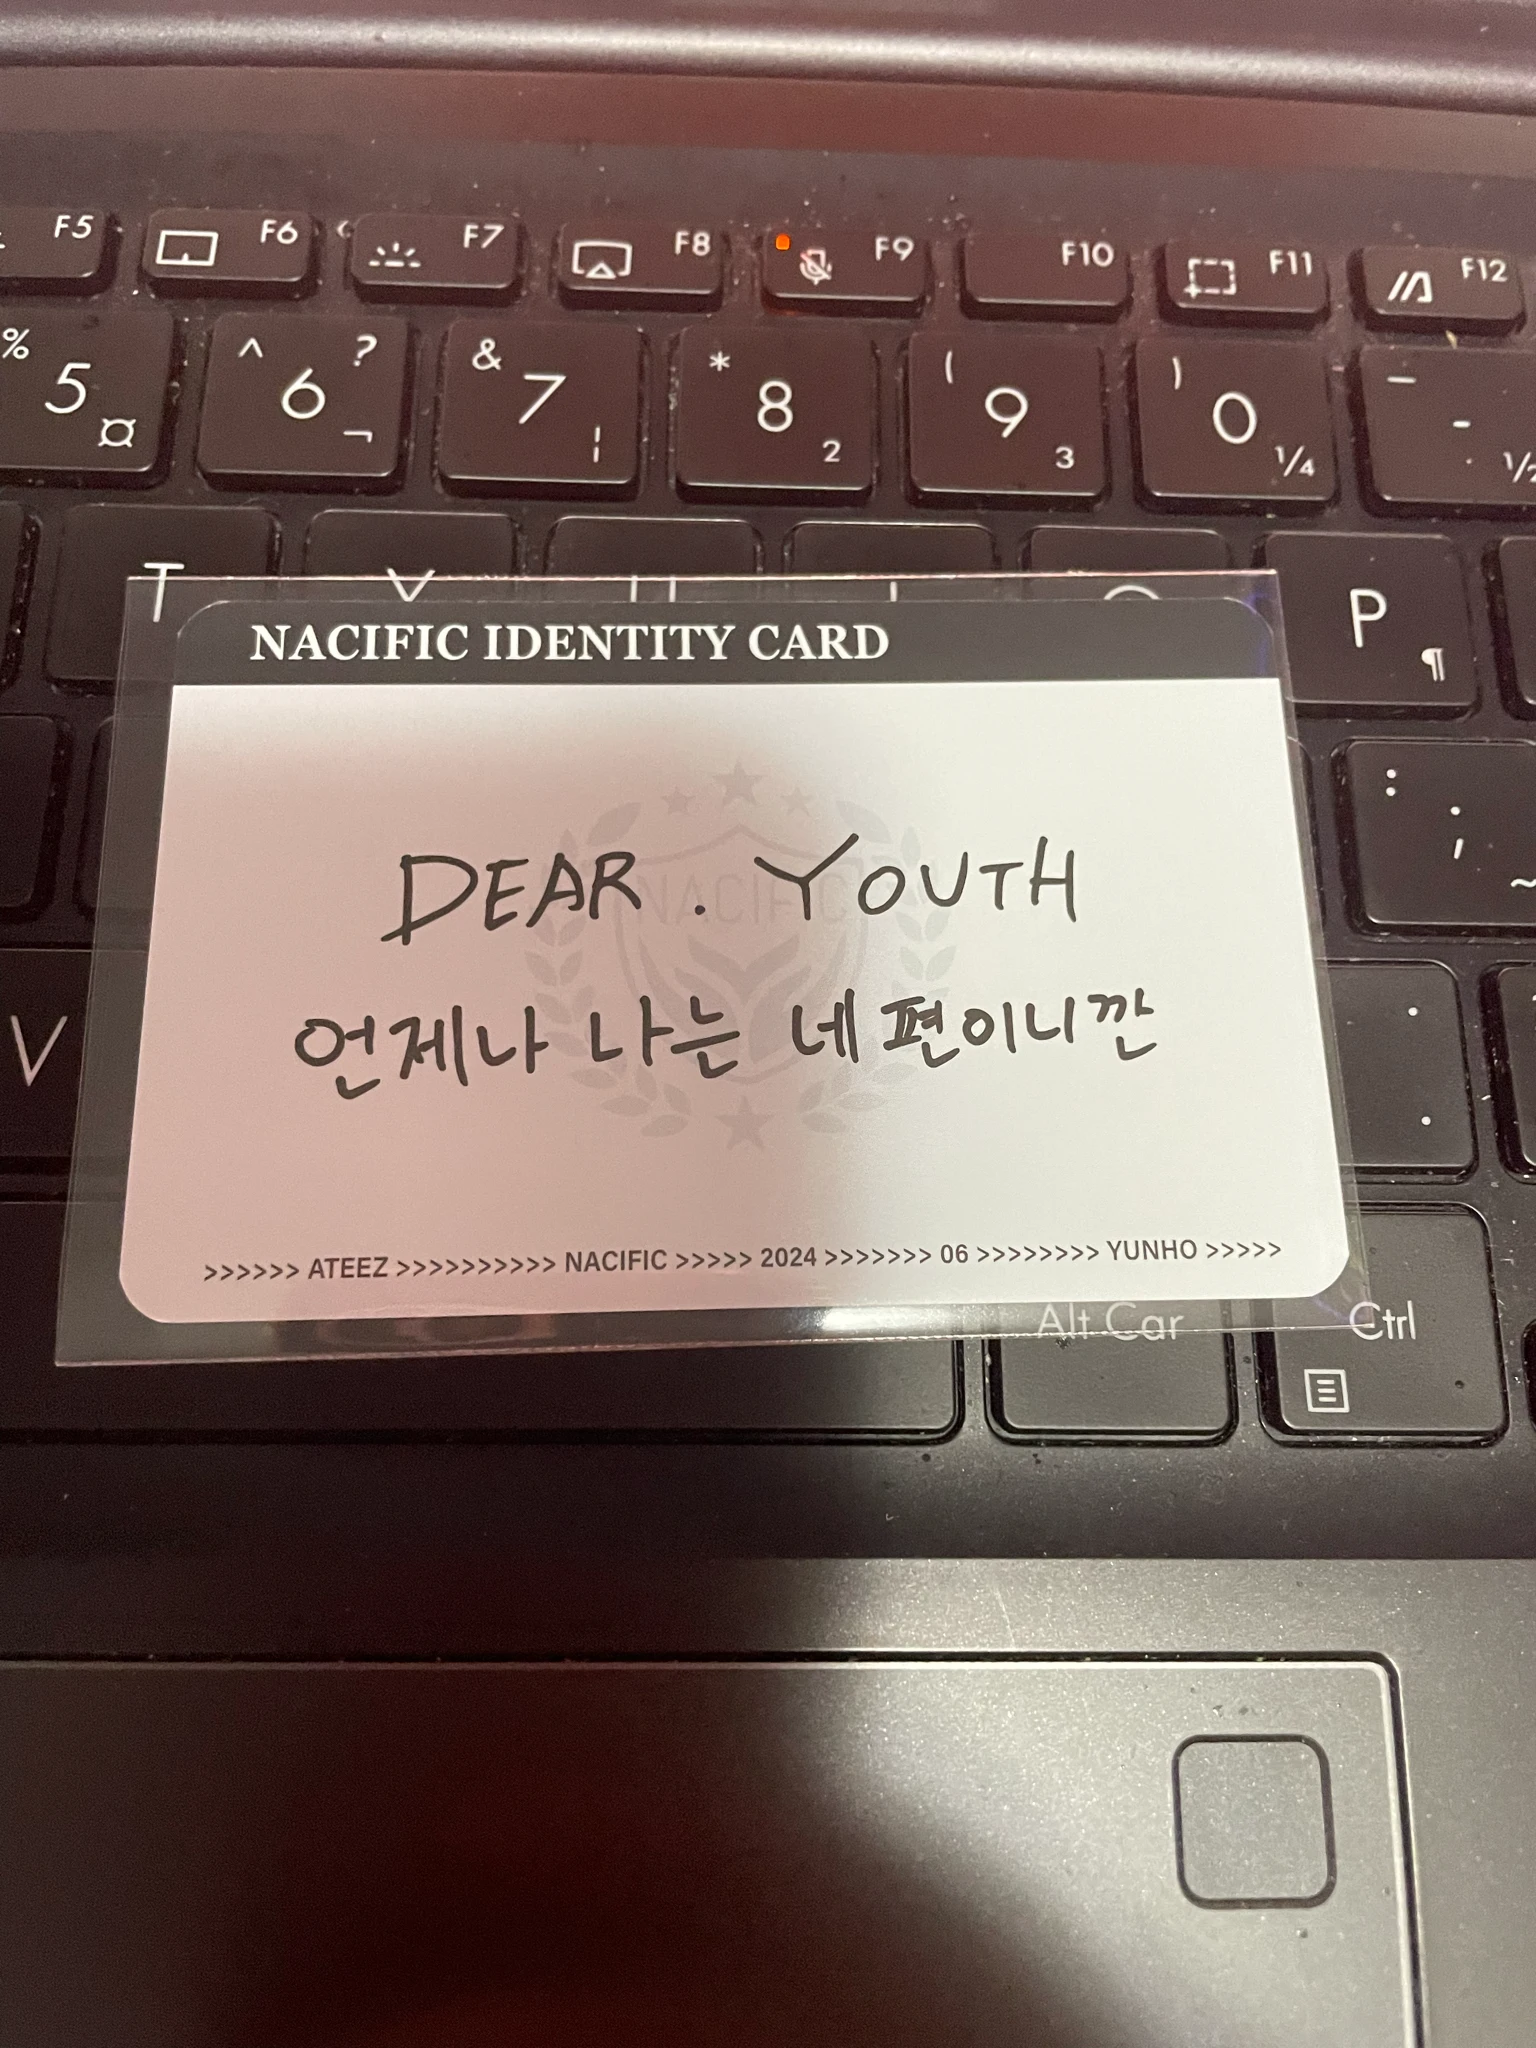 F5 F6 F7 F8 F9 F10 F11 F12
% 5 ¤ ^ 6 ? ¬ & 7 ¦ * 8 2 ( 9 3 ) 0 1/4 _ - 1/2
T Y U I O P ¶
NACIFIC IDENTITY CARD
: ; ~
NACIFIC
DEAR. YOUTH
언제나 나는 네 편이니깐
V
>>>>>> ATEEZ >>>>>>>>>> NACIFIC >>>>> 2024 >>>>>>> 06 >>>>>>>> YUNHO >>>>>
Alt Car Ctrl